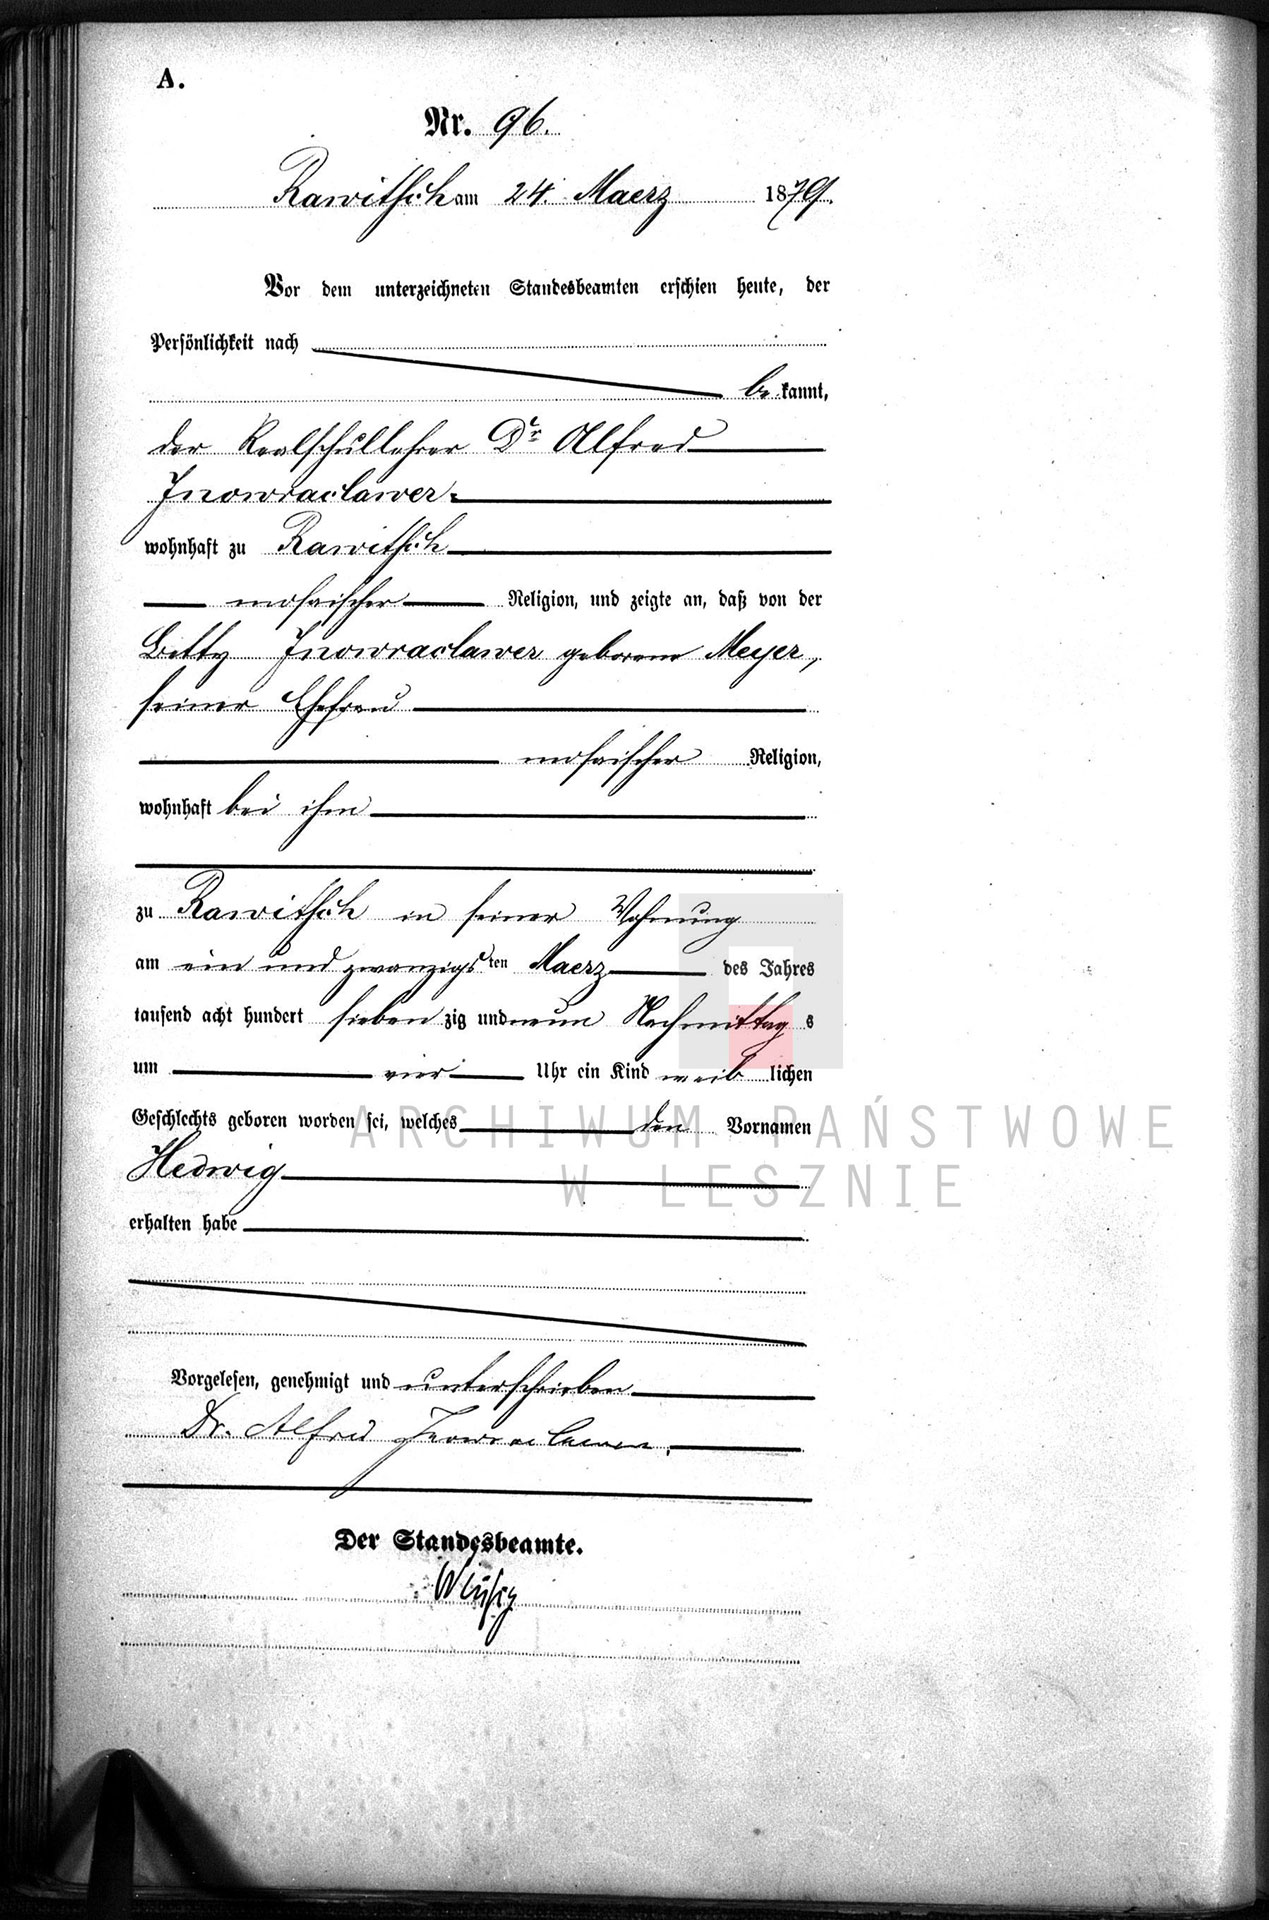 A.
Nr. 96.
Rawitsch am 24. Maerz 1879.
Vor dem unterzeichneten Standesbeamten erschien heute, der
Persönlichkeit nach
be kannt,
der Realschullehrer Dr Alfred
Inowraclawer
wohnhaft zu Rawitsch
mosaischer Religion, und zeigte an, daß von der
Betty Inowraclawer geborene Meyer,
seiner Ehefrau
mosaischer Religion,
wohnhaft bei ihm
zu Rawitsch in seiner Wohnung
am ein und zwanzigsten Maerz des Jahres
tausend acht hundert sieben zig und neun Nachmittag s
um vier Uhr ein Kind weib lichen
Geschlechts geboren worden sei, welches den Vornamen
ARCHIWUM PAŃSTWOWE
Hedwig
W LESZNIE
erhalten habe
Vorgelesen, genehmigt und unterschrieben
Dr. Alfred Inowraclawer.
Der Standesbeamte.